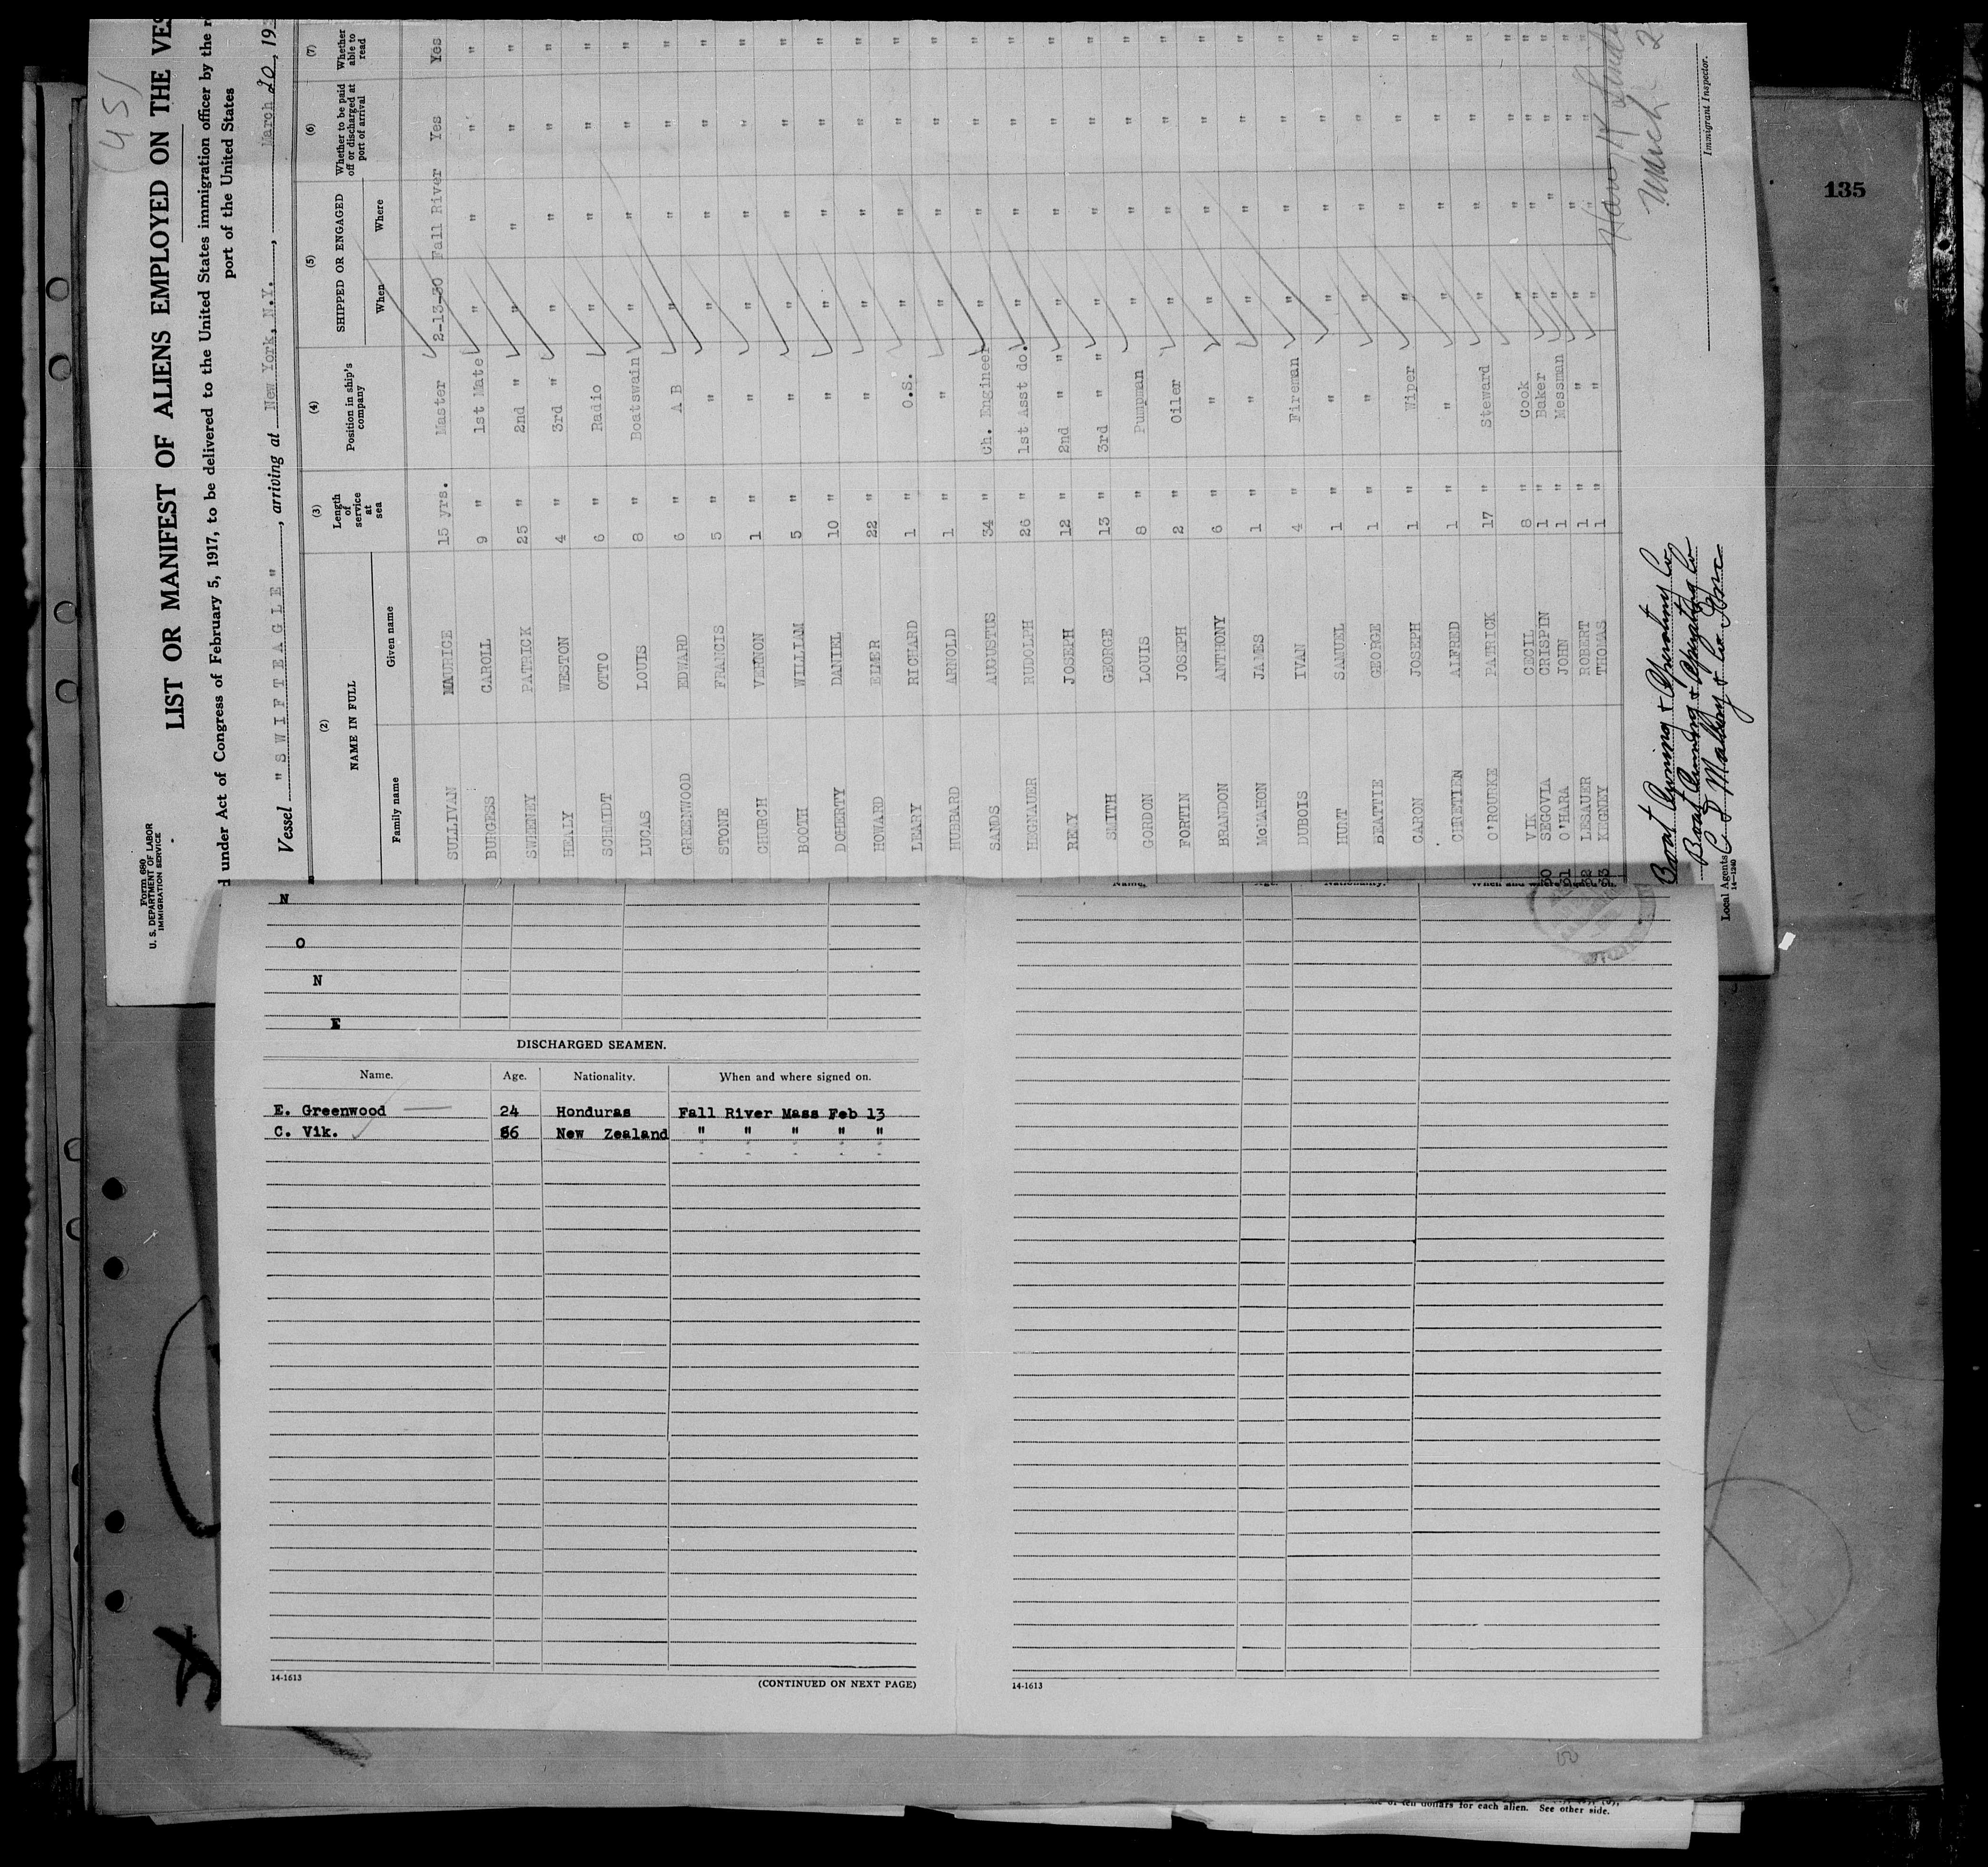 (45)
Form 680
U. S. DEPARTMENT OF LABOR
IMMIGRATION SERVICE
LIST OR MANIFEST OF ALIENS EMPLOYED ON THE VES
d under Act of Congress of February 5, 1917, to be delivered to the United States immigration officer by the r
port of the United States
Vessel "SWIFTEAGLE", arriving at New York, N.Y., March 20, 19
(2) (3) (4) (5) (6) (7)
NAME IN FULL Length of service at sea Position in ship's company SHIPPED OR ENGAGED Whether to be paid off or discharged at port of arrival Whether able to read
Family name Given name When Where
SULLIVAN MAURICE 15 yrs. Master 2-13-30 Fall River Yes Yes
BURGESS CAROLL 9 " 1st Mate " " " "
SWEENEY PATRICK 25 " 2nd " " " " "
HEALY WESTON 4 " 3rd " " " " "
SCHMIDT OTTO 6 " Radio " " " "
LUCAS LOUIS 8 " Boatswain " " " "
GREENWOOD EDWARD 6 " A B " " " "
STONE FRANCIS 5 " " " " " "
CHURCH VERNON 1 " " " " " "
BOOTH WILLIAM 5 " " " " " "
DOHERTY DANIEL 10 " " " " " "
HOWARD ELMER 22 " " " " " "
LEARY RICHARD 1 " O.S. " " " "
HUBBARD ARNOLD 1 " " " " " "
SANDS AUGUSTUS 34 " Ch. Engineer " " " "
HEGNAUER RUDOLPH 26 " 1st Asst do. " " " "
REMY JOSEPH 12 " 2nd " " " " " "
SMITH GEORGE 13 " 3rd " " " " " "
GORDON LOUIS 8 " Pumpman " " " "
FORTIN JOSEPH 2 " Oiler " " " "
BRANDON ANTHONY 6 " " " " " "
McMAHON JAMES 1 " " " " " "
DUBOIS IVAN 4 " Fireman " " " "
HUNT SAMUEL 1 " " " " " "
BEATTIE GEORGE 1 " " " " " "
CARON JOSEPH 1 " Wiper " " " "
CHRETIEN ALFRED 1 " " " " " "
O'ROURKE PATRICK 17 " Steward " " " "
VIK CECIL 8 " Cook " " " "
30 SEGOVIA CRISPIN 1 " Baker " " " "
31 O'HARA JOHN 1 " Messman " " " "
32 LESAUER ROBERT 1 " " " " " "
33 KEGNEY THOMAS 1 " " " " " "
Boat Owning & Operating Co
Boat Owning & Operating Co
C D Mallory & Co Inc
Local Agents
14-1240
March 2
Immigrant Inspector.
135
N
O
N
E
DISCHARGED SEAMEN.
Name. Age. Nationality. When and where signed on.
E. Greenwood 24 Honduras Fall River Mass Feb 13
C. Vik. 36 New Zealand " " " " "
14-1613
(CONTINUED ON NEXT PAGE)
Name. Age. Nationality. When and where signed on.
14-1613
50
of ten dollars for each alien. See other side.